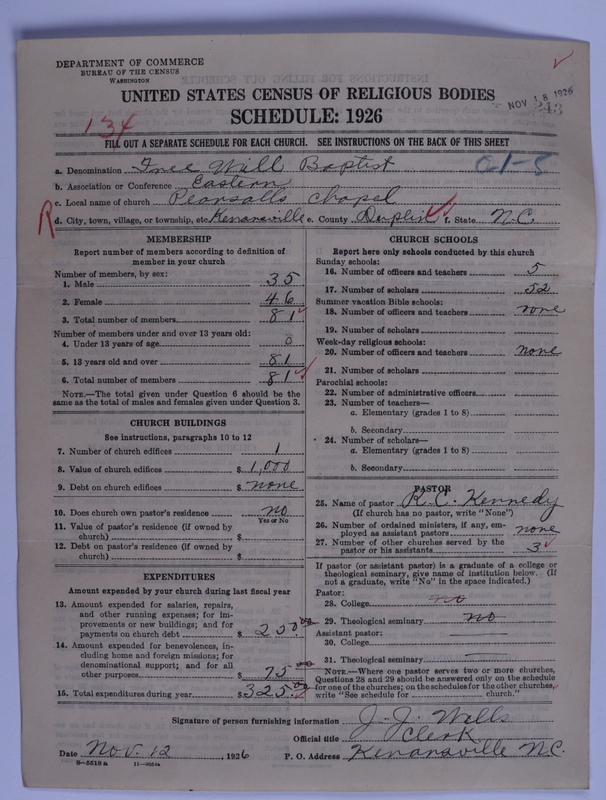 DEPARTMENT OF COMMERCE
BUREAU OF THE CENSUS
WASHINGTON
UNITED STATES CENSUS OF RELIGIOUS BODIES
SCHEDULE: 1926
NOV 18 1926
243
134
FILL OUT A SEPARATE SCHEDULE FOR EACH CHURCH. SEE INSTRUCTIONS ON THE BACK OF THIS SHEET
a. Denomination Free Will Baptist
01-5
b. Association or Conference Eastern
c. Local name of church Pearsalls Chapel
R
d. City, town, village, or township, etc. Kenansville e. County Duplin f. State N.C.
MEMBERSHIP
Report number of members according to definition of
member in your church
Number of members, by sex:
1. Male 35
2. Female 46
3. Total number of members 81
Number of members under and over 13 years old:
4. Under 13 years of age 0
5. 13 years old and over 81
6. Total number of members 81
NOTE.—The total given under Question 6 should be
same as the total of males and females given under Question 3.
CHURCH BUILDINGS
See instructions, paragraphs 10 to 12
7. Number of church edifices 1
8. Value of church edifices $ 1,000
9. Debt on church edifices $ none
10. Does church own pastor's residence no
Yes or No
11. Value of pastor's residence (if owned by
church) $
12. Debt on pastor's residence (if owned by
church) $
EXPENDITURES
Amount expended by your church during last fiscal year
13. Amount expended for salaries, repairs,
and other running expenses; for im-
provements or new buildings; and for
payments on church debt $ 250.00
14. Amount expended for benevolences, in-
cluding home and foreign missions; for
denominational support; and for all
other purposes $ 75.00
15. Total expenditures during year $ 325.00
CHURCH SCHOOLS
Report here only schools conducted by this church
Sunday schools:
16. Number of officers and teachers 5
17. Number of scholars 52
Summer vacation Bible schools:
18. Number of officers and teachers none
19. Number of scholars
Week-day religious schools:
20. Number of officers and teachers none
21. Number of scholars
Parochial schools:
22. Number of administrative officers
23. Number of teachers—
a. Elementary (grades 1 to 8)
b. Secondary
24. Number of scholars—
a. Elementary (grades 1 to 8)
b. Secondary
PASTOR
25. Name of pastor R.C. Kennedy
(If church has no pastor, write "None")
26. Number of ordained ministers, if any, em-
ployed as assistant pastors none
27. Number of other churches served by the
pastor or his assistants 3
If pastor (or assistant pastor) is a graduate of a college or
theological seminary, give name of institution below. (If
not a graduate, write "No" in the space indicated.)
Pastor:
28. College no
29. Theological seminary no
Assistant pastor:
30. College
31. Theological seminary
NOTE.—Where one pastor serves two or more churches,
Questions 28 and 29 should be answered only on the schedule
for one of the churches; on the schedules for the other churches,
write "See schedule for church."
Signature of person furnishing information J. J. Wells
Official title Clerk
Date Nov. 12, 1926 P. O. Address Kenansville N.C.
8—5518 a